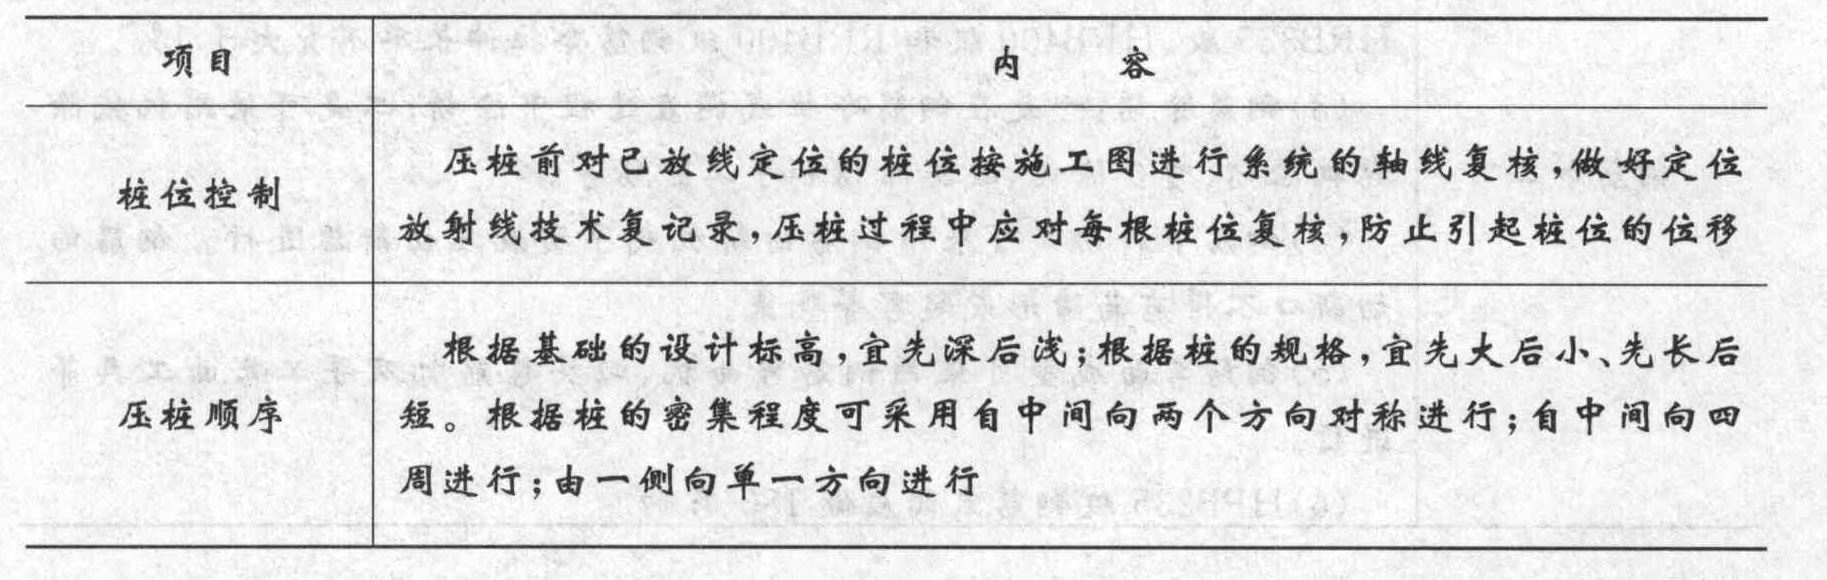 项目 内 容
桩位控制
压桩前对已放线定位的桩位按施工图进行系统的轴线复核,做好定位
放射线技术复记录,压桩过程中应对每根桩位复核,防止引起桩位的位移
压桩顺序
根据基础的设计标高,宜先深后浅;根据桩的规格,宜先大后小、先长后
短。根据桩的密集程度可采用自中间向两个方向对称进行;自中间向四
周进行;由一侧向单一方向进行